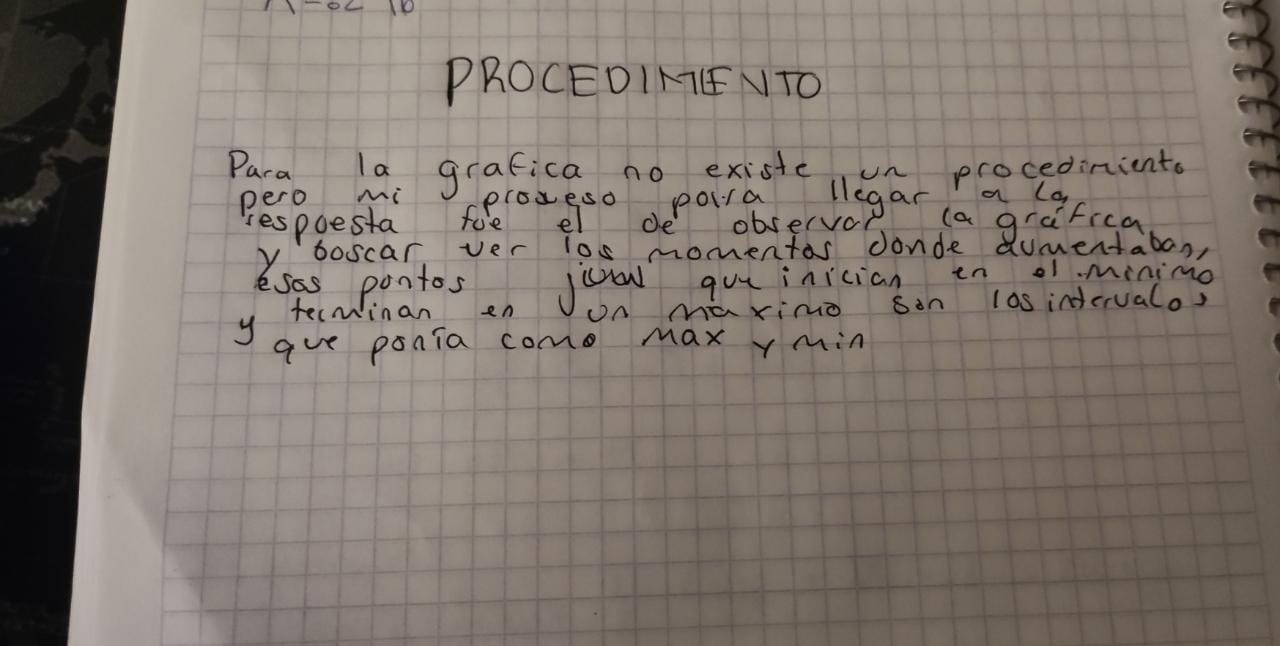 PROCEDIMIENTO
Para la grafica no existe un procedimiento
pero mi proseso para llegar a la
respuesta fue el de observar la gráfica
y buscar ver los momentos donde aumentaban,
esos puntos que inician en el minimo
y terminan en un maximo son los intervalos
que ponía como Max y Min